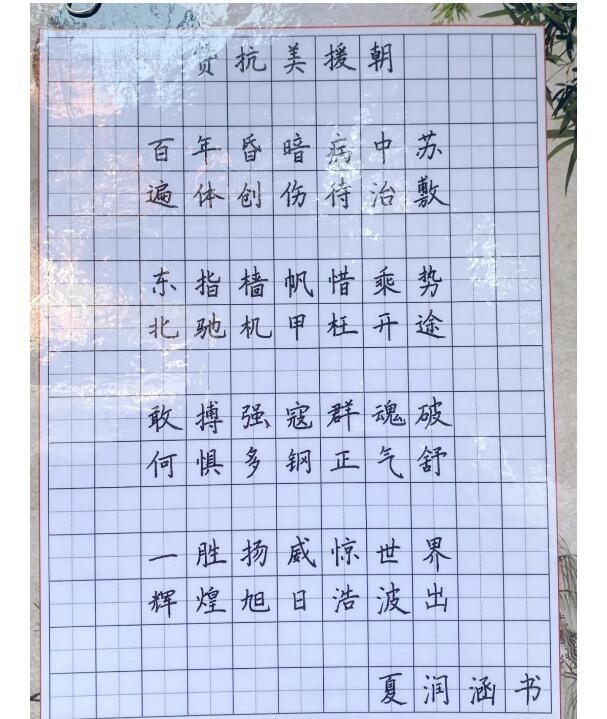 赞抗美援朝
百年昏暗病中苏
遍体创伤待治敷
东指樯帆惜乘势
北驰机甲枉开途
敢搏强寇群魂破
何惧多钢正气舒
一胜扬威惊世界
辉煌旭日浩波出
夏润涵书